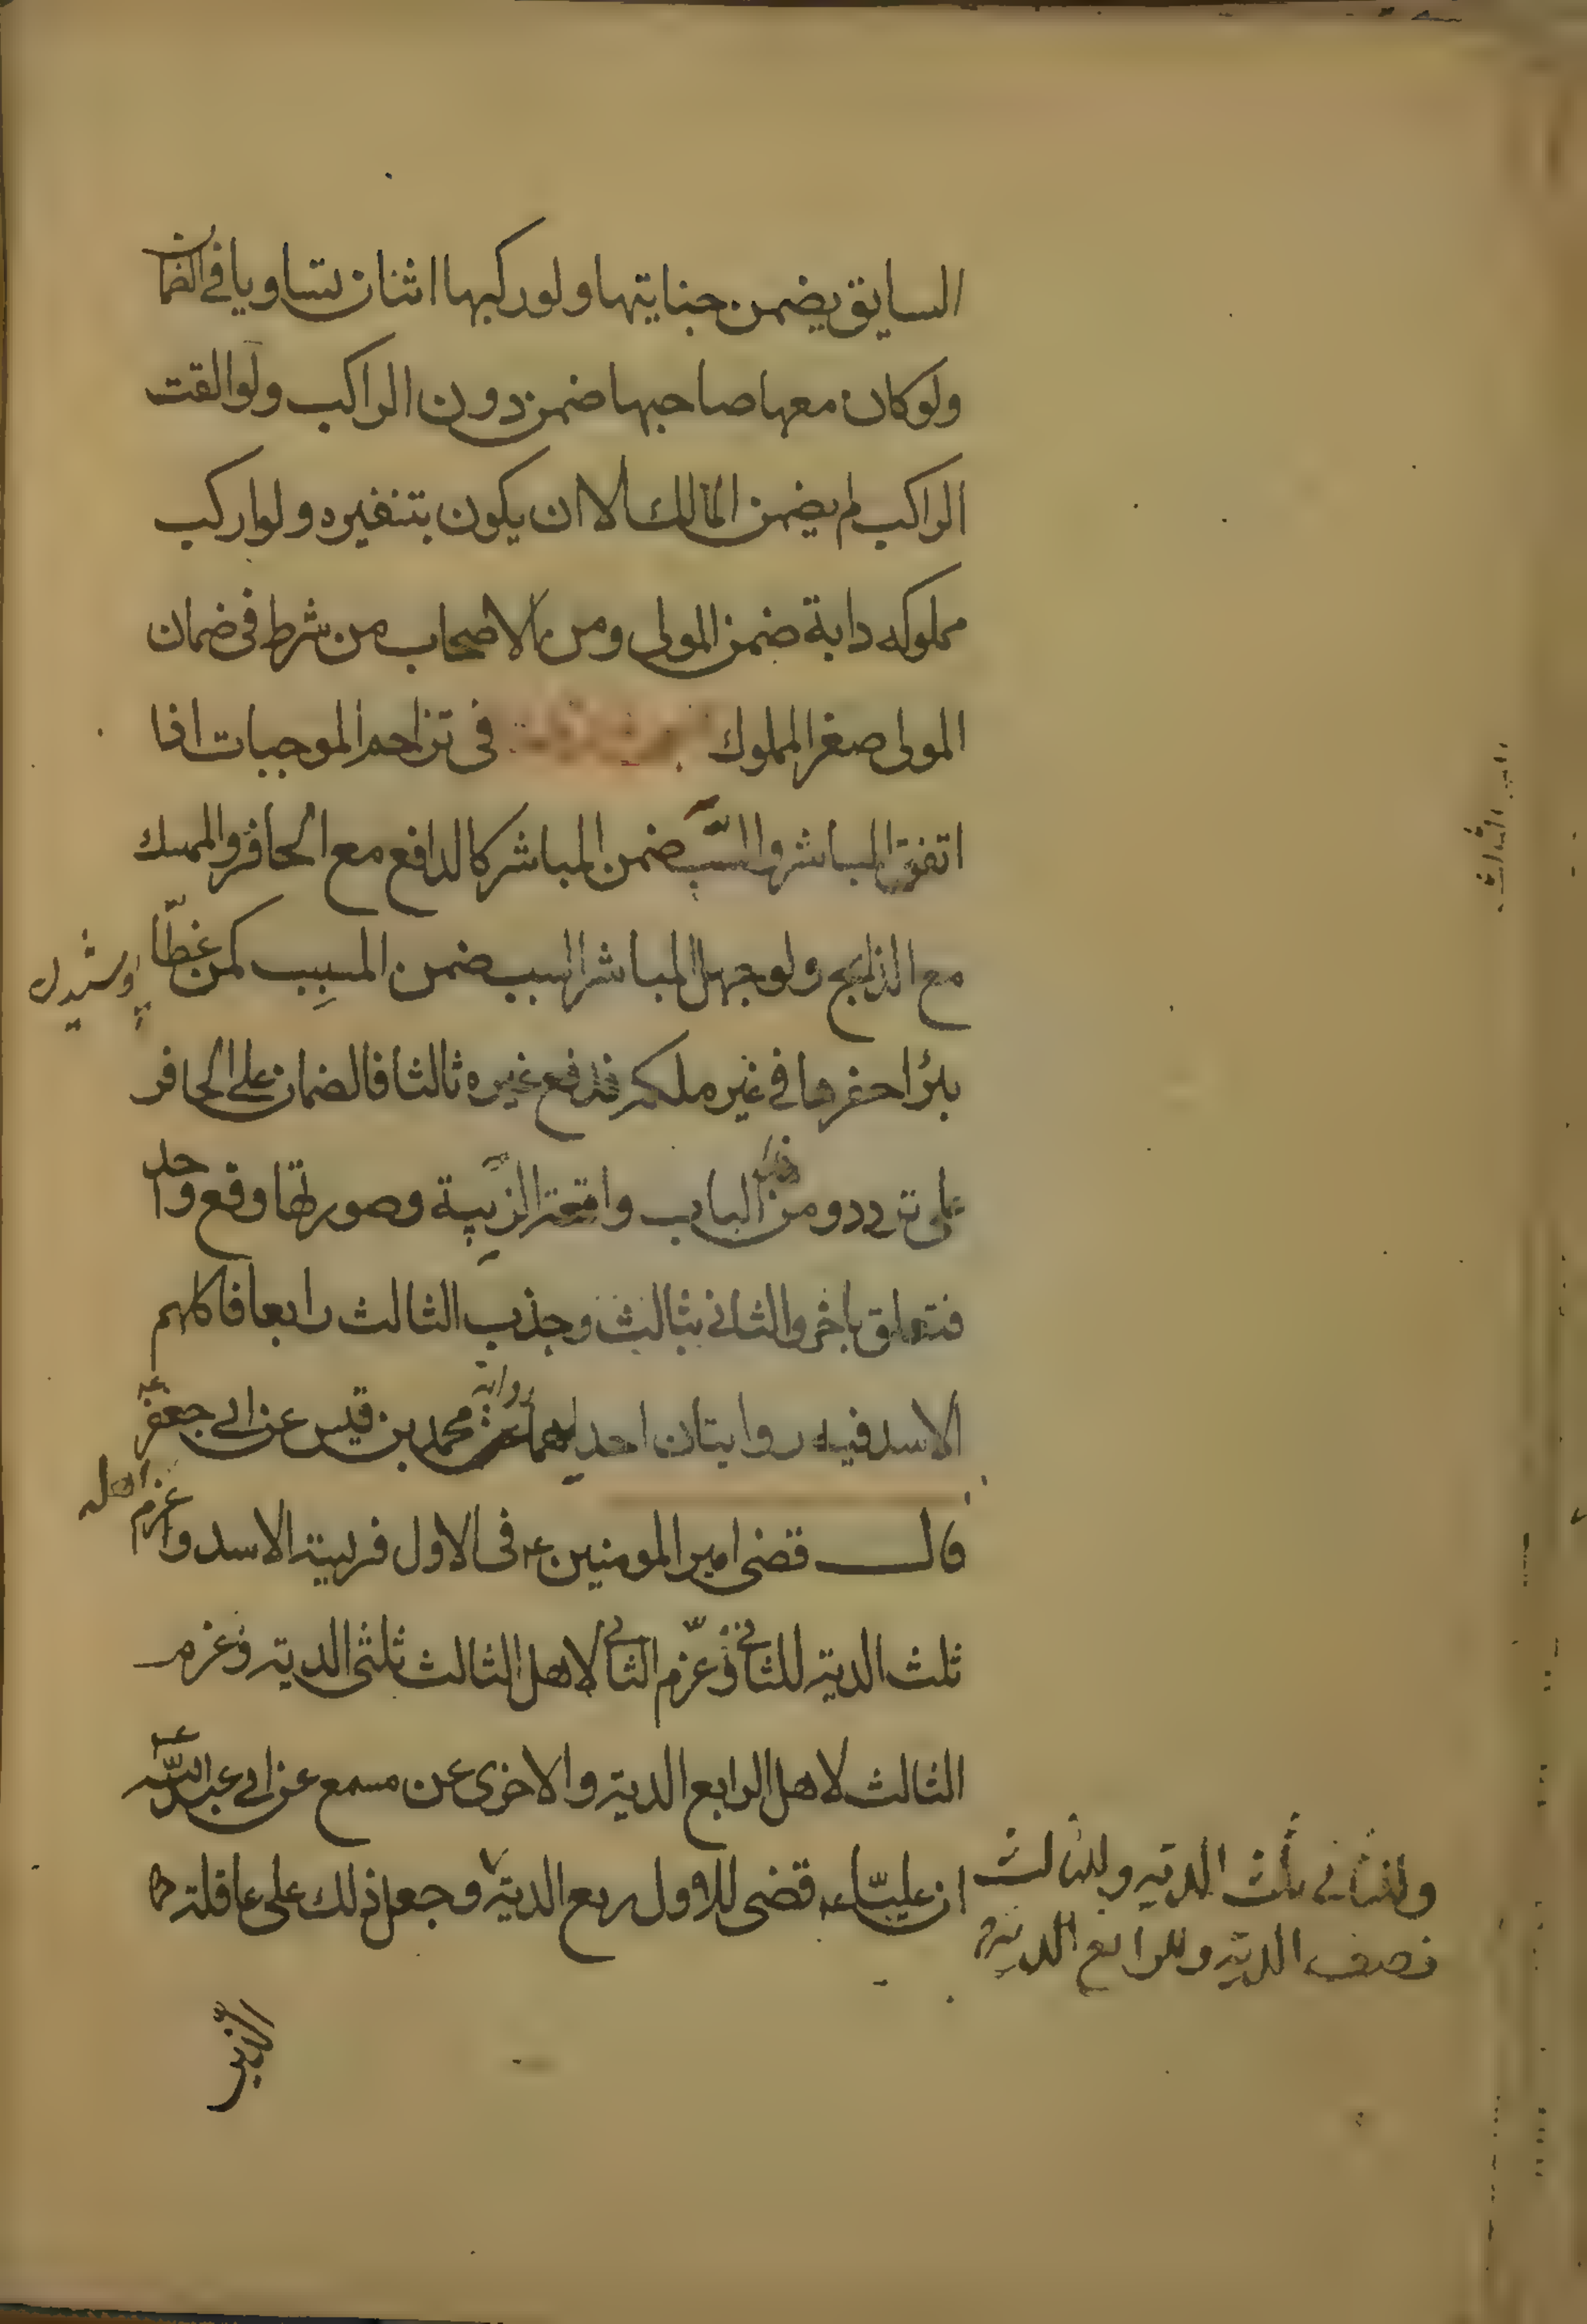 السايق يضمن جنايتها ولو ركبها اثنان تساويا في الضمان
ولو كان معها صاحبها ضمن دون الراكب ولو القت
الراكب لم يضمن المالك الا ان يكون بتنفيره ولو اركب
مملوكه دابة ضمن المولى ومن الاصحاب من شرط في ضمان
المولى صغر المملوك في تزاحم الموجبات اذا
اتفق المباشر والسبب ضمن المباشر كالدافع مع الحافر والممسك
مع الذابح ولو جهل المباشر السبب ضمن المسبب كمن غطّا
بئرا حفرها في غير ملكه فدفع غيره ثالثا فالضمان على الحافر
على تردد ومن هذا الباب واقعة الزبية وصورتها وقع واحد
فتعلق باخر والثاني بثالث وجذب الثالث رابعا فاكلهم
الاسد فيه روايتان احديهما رواية محمد بن قيس عن ابي جعفر ع
قال قضى امير المومنين ع في الاول فريسة الاسد واغرم اهله
ثلث الدية للثاني وغرّم الثاني لاهل الثالث ثلثي الدية وغرم
الثالث لاهل الرابع الدية والاخرى عن مسمع عن ابي عبد الله ع
ان عليّا ع قضى للاول ربع الدية وجعل ذلك على عاقلة
وللثاني ثلث الدية وللثالث
نصف الدية وللرابع الدية